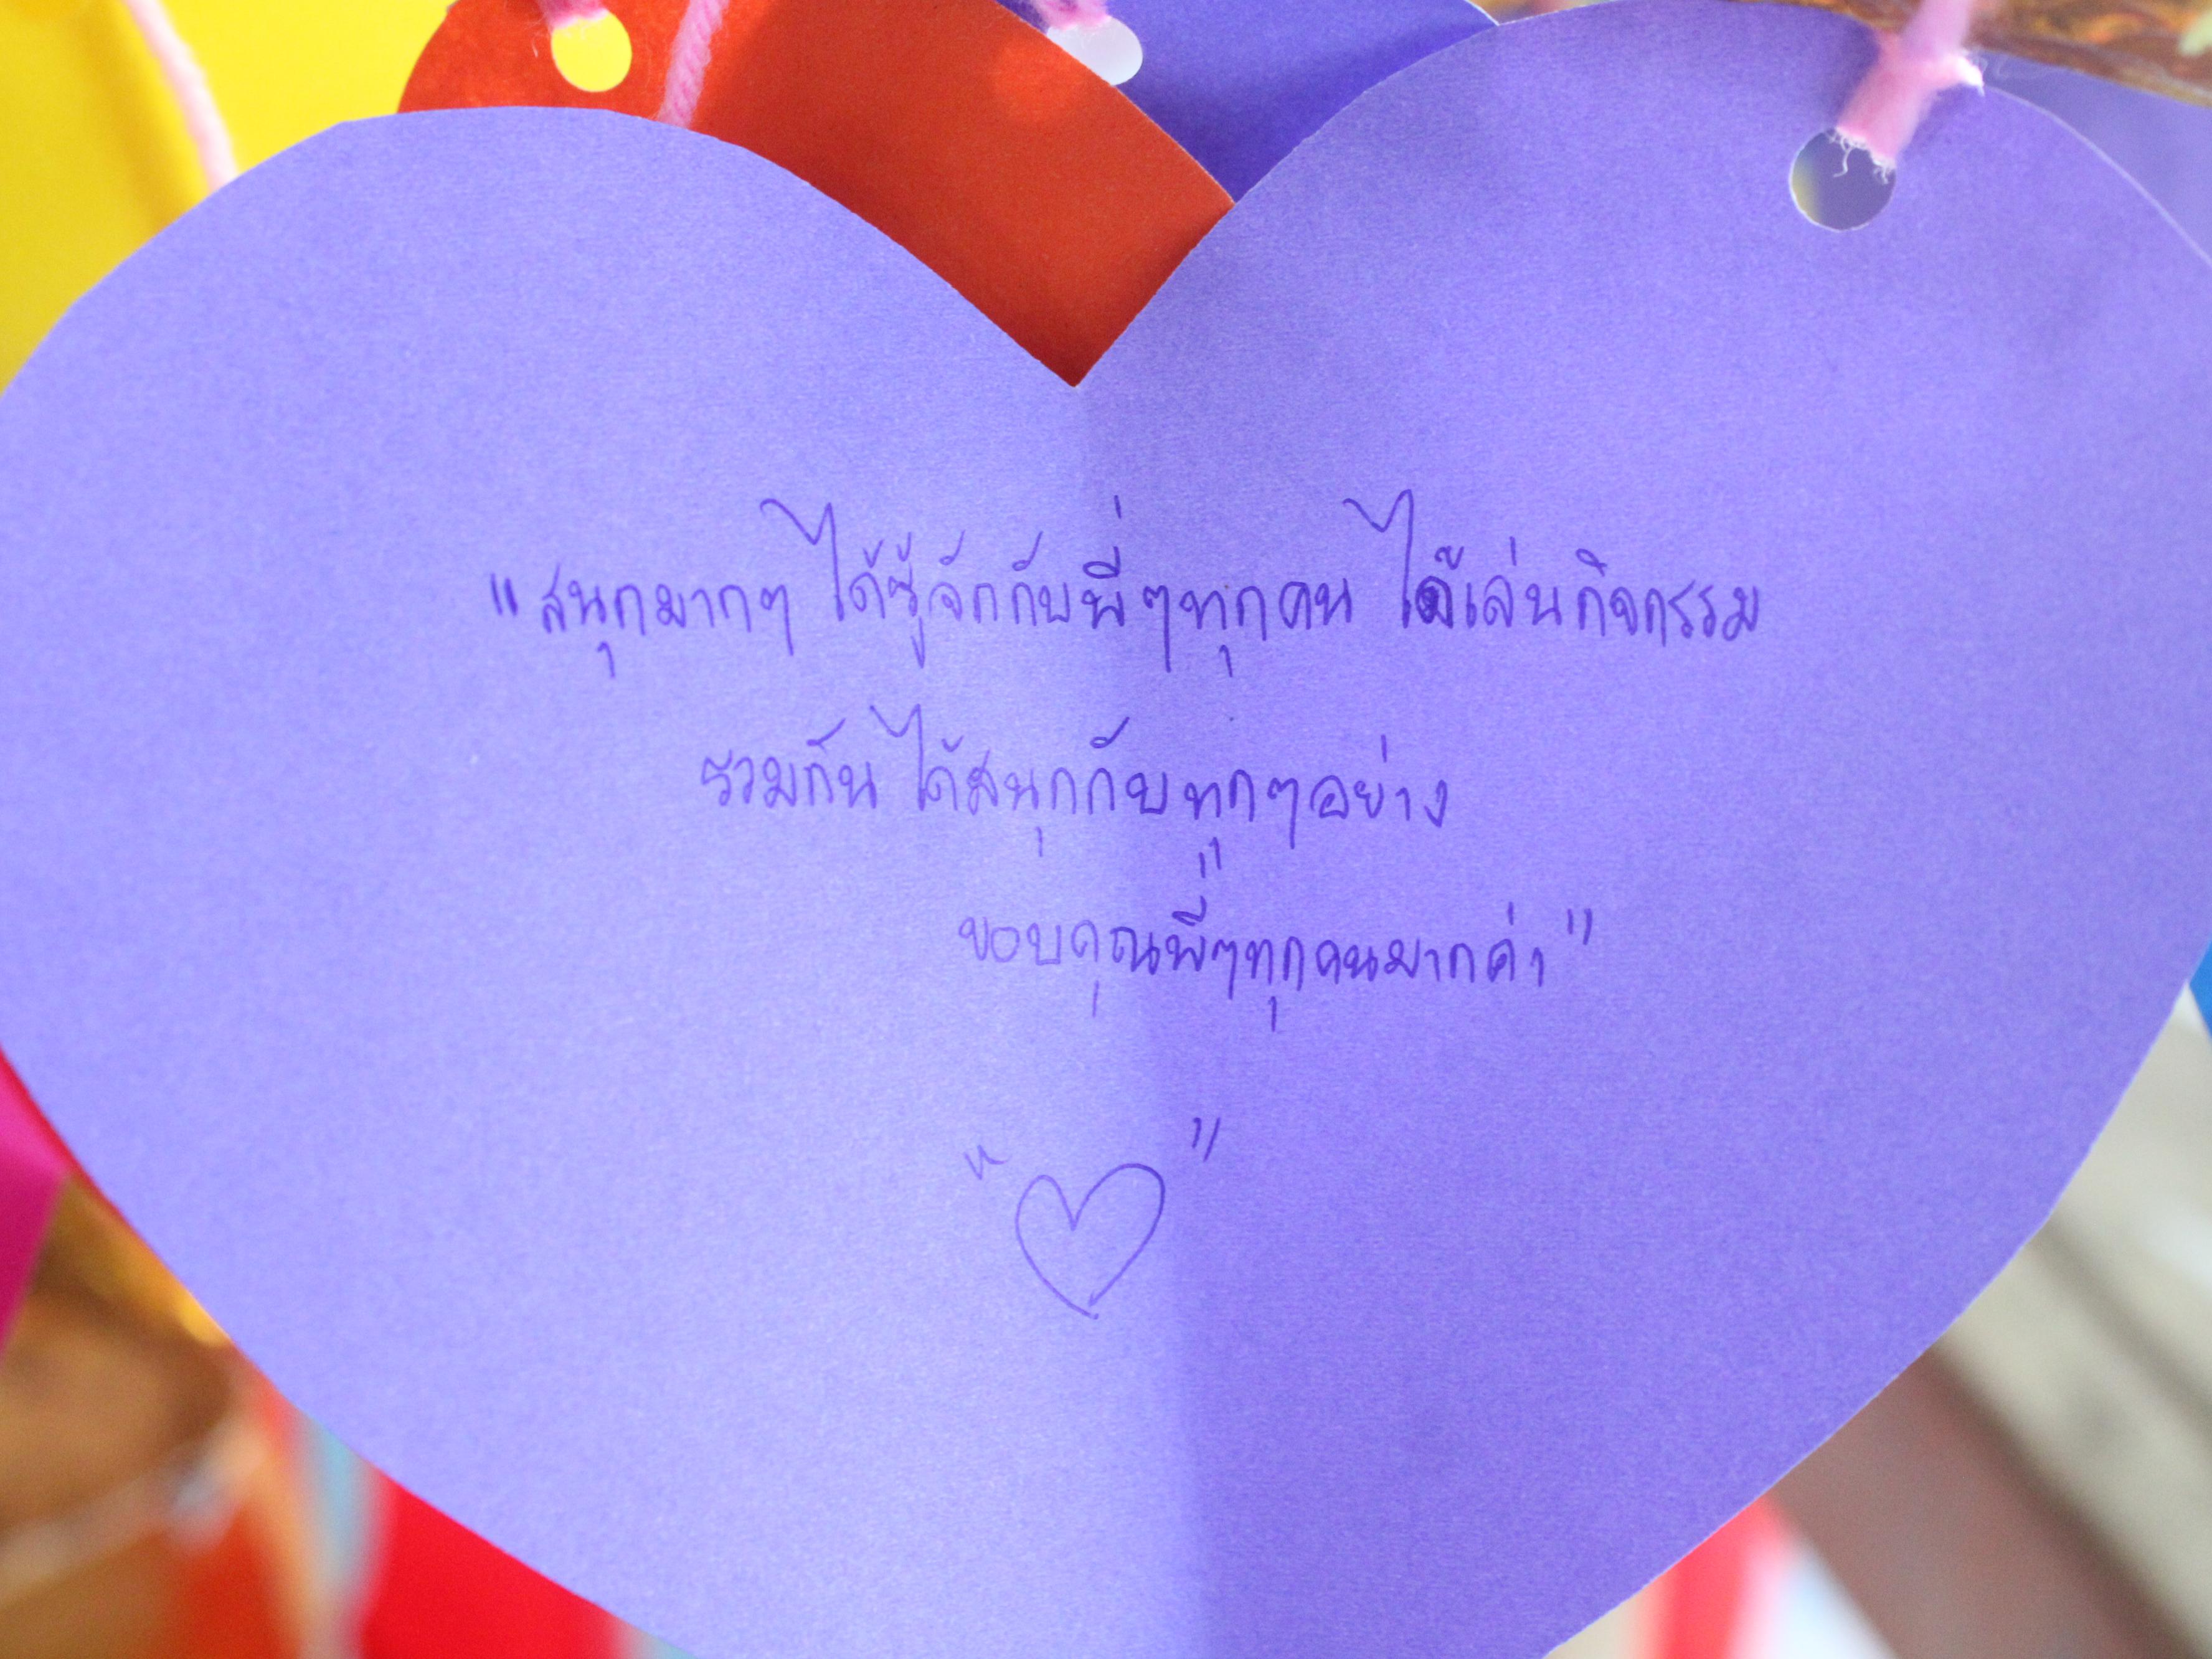 "สนุกมากๆ ได้รู้จักกับพี่ๆทุกคน ได้เล่นกิจกรรม
รวมกัน ได้สนุกกับทุกๆอย่าง
ขอบคุณพี่ๆทุกคนมากค่ะ"